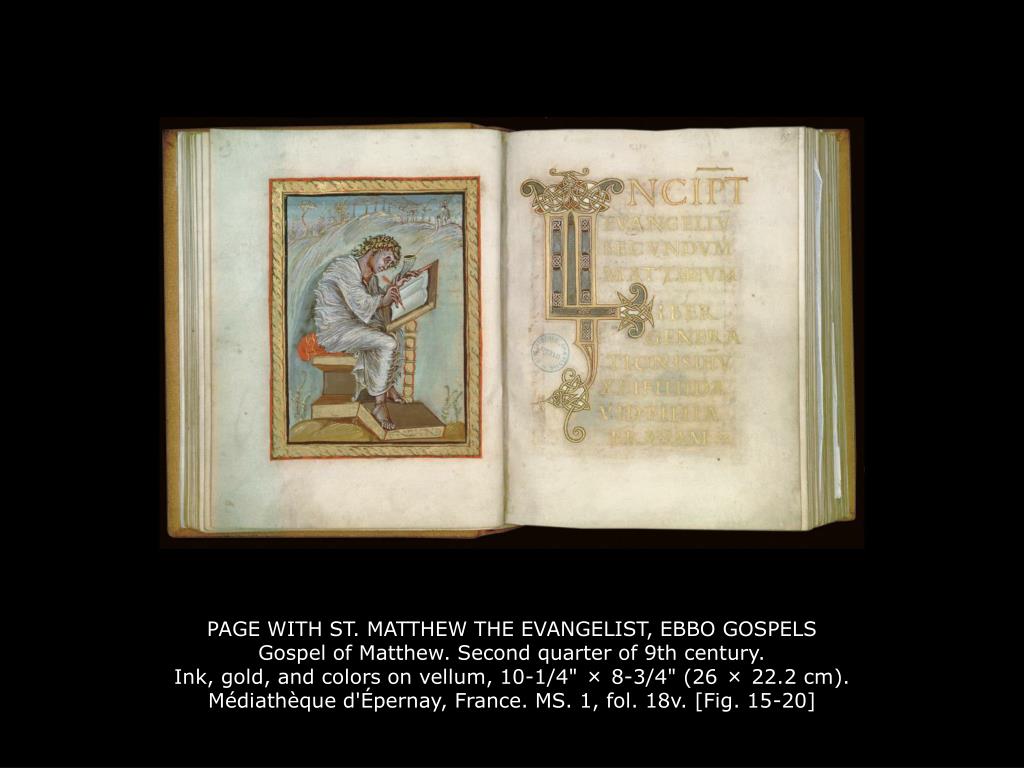 NCIPT
EVANGELIU
SECUNDUM
MATTHEUM
LIBER
GENERA
PAGE WITH ST. MATTHEW THE EVANGELIST, EBBO GOSPELS
Gospel of Matthew. Second quarter of 9th century.
Ink, gold, and colors on vellum, 10-1/4" × 8-3/4" (26 × 22.2 cm).
Médiathèque d'Épernay, France. MS. 1, fol. 18v. [Fig. 15-20]